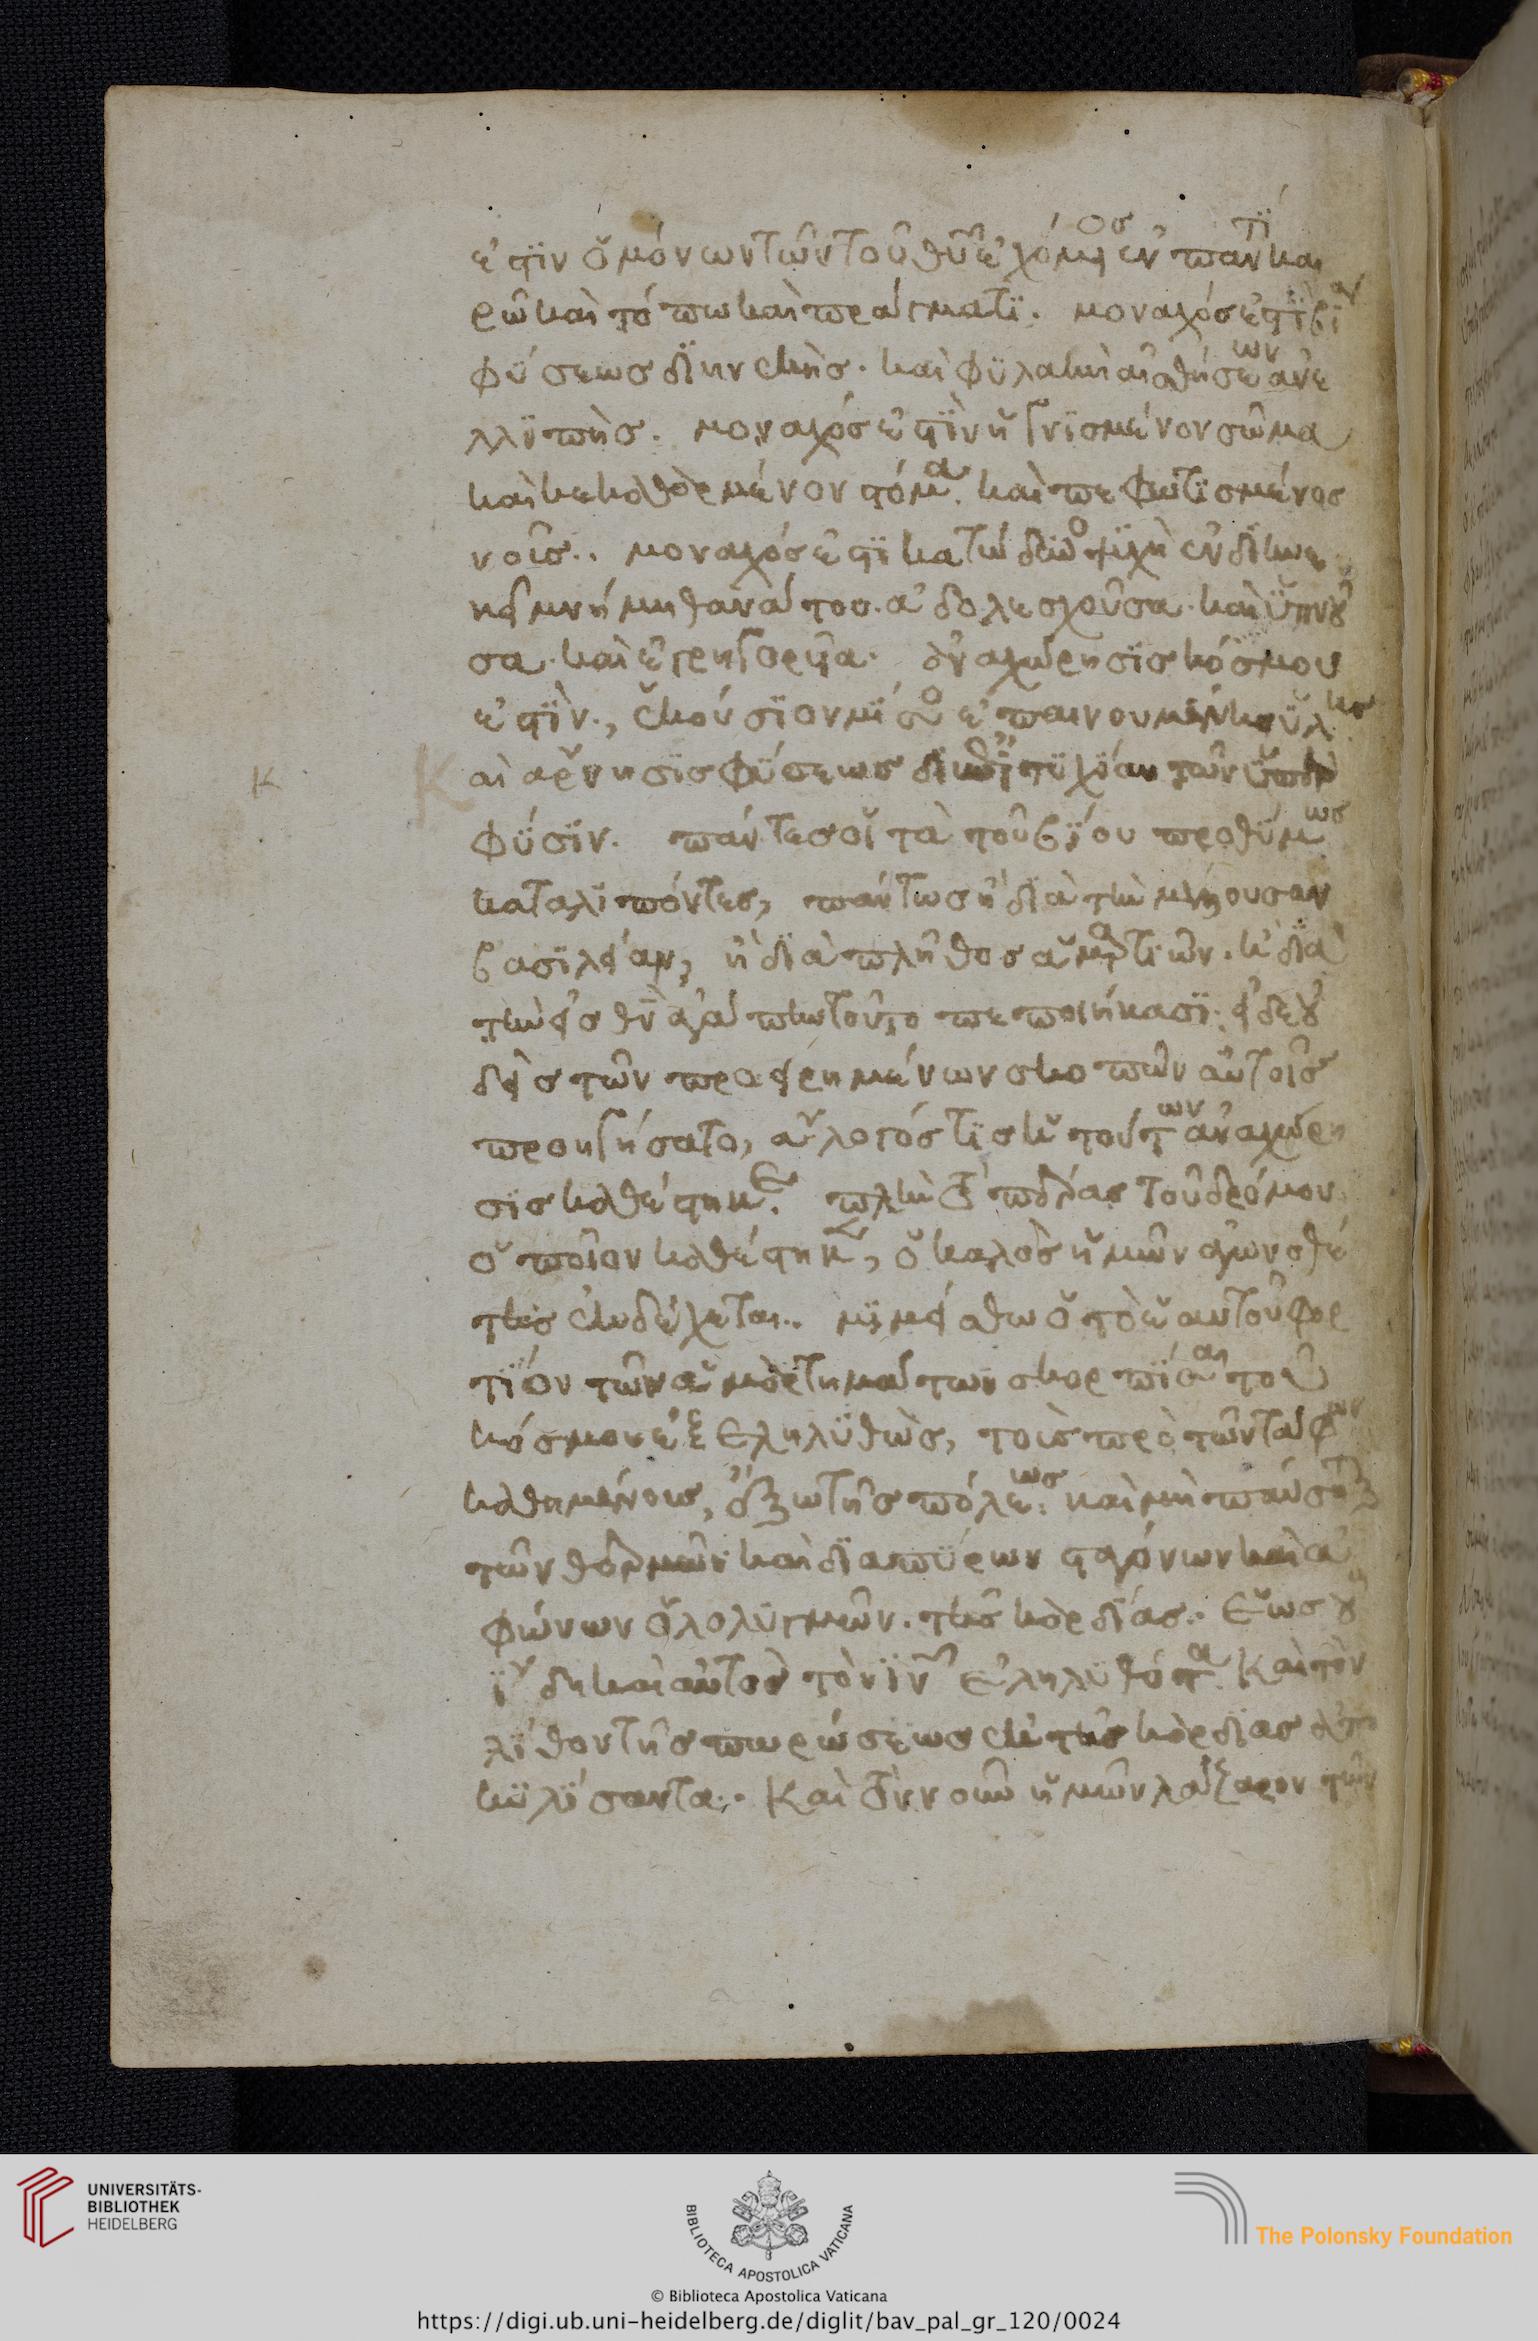 ἐστὶν ὁ μόνων τῶν τοῦ θυ ἐχόμενος ἐν παντὶ και
ρῶ καὶ τόπω καὶ πράγματι. μοναχός ἐστι βία
φύσεως διηνεκὴς. καὶ φυλακὴ αἰσθήσεων ἀνε
λλιπὴς. μοναχός ἐστὶν ἡγνισμένον σῶμα
καὶ κεκαθαρμένον στόμα. καὶ πεφωτισμένος
νοῦς.. μοναχός ἐστι κατώδυνος ψυχὴ ἐν διηνε
κεῖ μνήμη θανάτου. ἀδολεσχοῦσα. καὶ ὑπνοῦ
σα. καὶ ἐγρηγοροῦσα. ἀναχώρησις κόσμου
ἐστὶν., ἑκούσιον μίσος ἐπαινουμένης ὕλης
καὶ ἄρνησις φύσεως δι' ἐπιτυχίαν τῶν ὑπὲρ
φύσιν. πάντες οἱ τὰ τοῦ βίου προθύμως
καταλιπόντες, πάντως ἢ διὰ τὴν μέλλουσαν
βασιλείαν, ἢ διὰ πλῆθος ἁμαρτιῶν. ἢ διὰ
τὴν εἰς θν ἀγάπην τοῦτο πεποιήκασι. εἰ δὲ οὐ
δεὶς τῶν προειρημένων σκοπῶν αὐτοῖς
προηγήσατο, ἄλογός τις ἡ τούτων ἀναχώρη
σις καθέστηκε. πλὴν τὸ πέρας τοῦ δρόμου
ὁποῖον καθέστηκε, ὁ καλὸς ἡμῶν ἀγωνοθέ
της ἐκδέχεται.. μιμείσθω ὁ τὸ ἑαυτοῦ φορ
τίον τῶν ἁμαρτημάτων σκορπίσαι τοῦ
κόσμου ἐξεληλυθὼς, τοὺς πρὸ τῶν τάφων
καθημένους, ἔξω τῆς πόλεως. καὶ μὴ παύσηται
τῶν θερμῶν καὶ διαπύρων σταγόνων καὶ ἀ
φώνων ὀλολυγμῶν. τῆς καρδίας. ἕως οὗ
ἴδη καὶ αὐτὸς τὸν ιν ἐληλυθότα. καὶ τὸν
λίθον τῆς πωρώσεως ἐκ τῆς καρδίας ἀπο
κυλίσαντα.. Καὶ τὸν νοῦν ἡμῶν λάζαρον τῶν
K
UNIVERSITÄTS-
BIBLIOTHEK
HEIDELBERG
BIBLIOTECA APOSTOLICA VATICANA
The Polonsky Foundation
© Biblioteca Apostolica Vaticana
https://digi.ub.uni-heidelberg.de/diglit/bav_pal_gr_120/0024